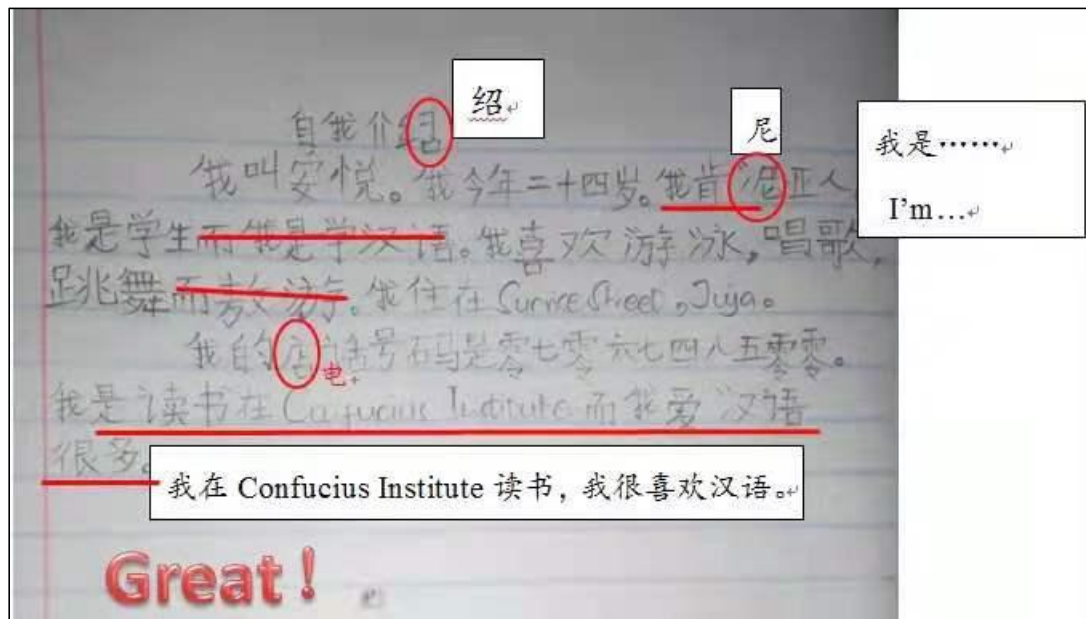 自我介绍
绍
尼
我是……
I'm...
我叫安悦。我今年二十四岁。我肯泥亚人,
我是学生而我是学汉语。我喜欢游泳,唱歌,
跳舞而敖游。我住在 Sunrise Street, Juja。
我的店话号码是零七零六七四八五零零。
电
我是读书在 Confucius Institute 而我爱汉语
很多。
我在 Confucius Institute 读书，我很喜欢汉语。
Great！